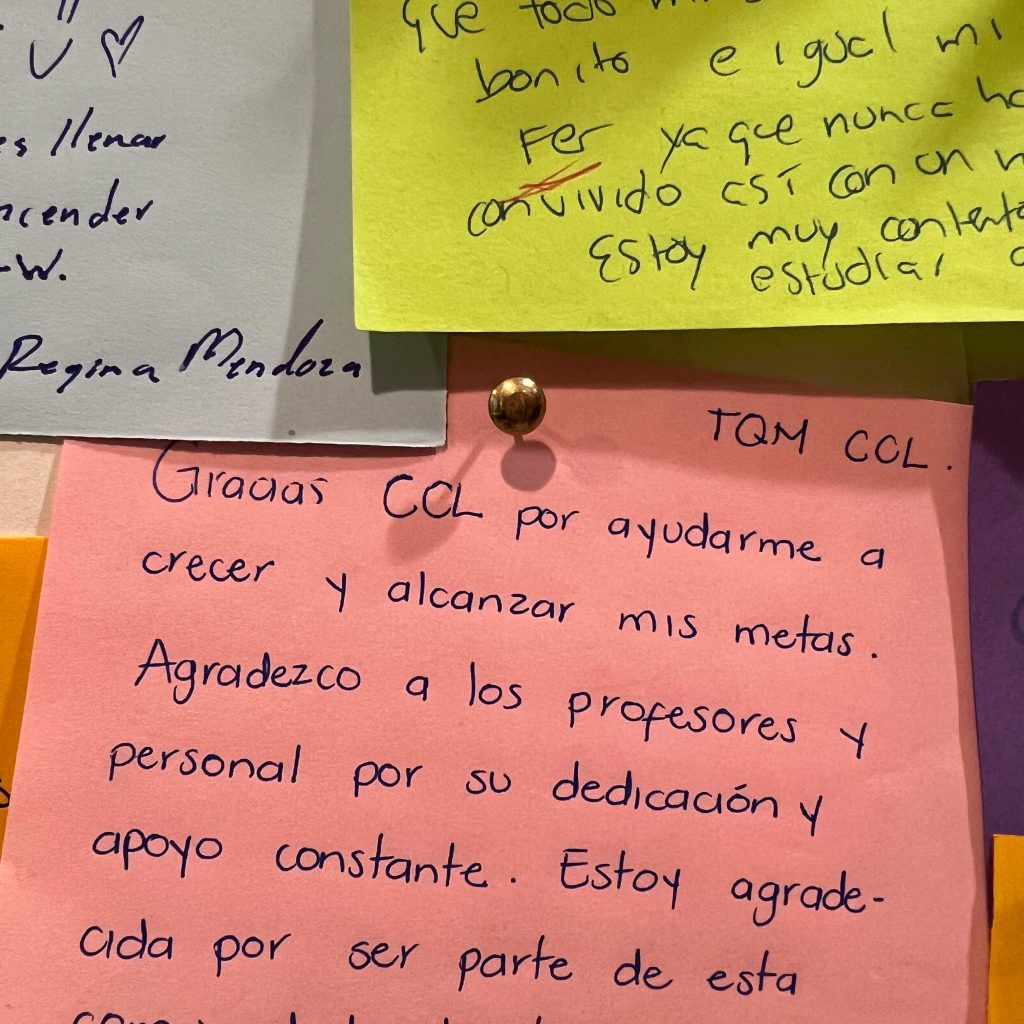 es llenar
ncender
-W.
Regina Mendoza
que todo
bonito e igual mi
Fer ya que nunca ha
convivido así con un
Estoy muy contenta
estudiar
TQM CCL.
Gracias CCL por ayudarme a
crecer y alcanzar mis metas.
Agradezco a los profesores y
personal por su dedicación y
apoyo constante. Estoy agrade-
cida por ser parte de esta